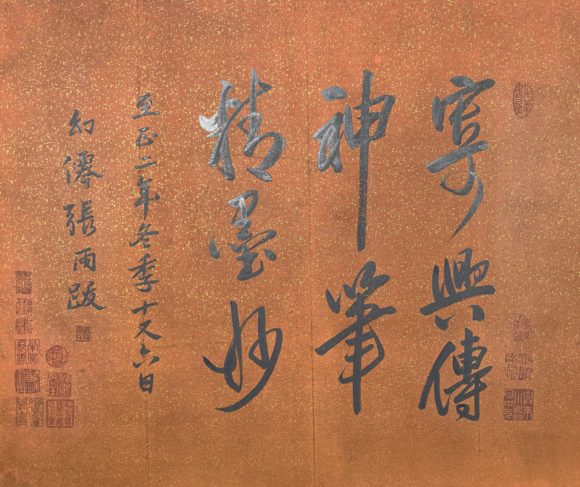 寄興傳
神筆
精墨妙
至正二年冬季十又六日
幻僊張雨跋